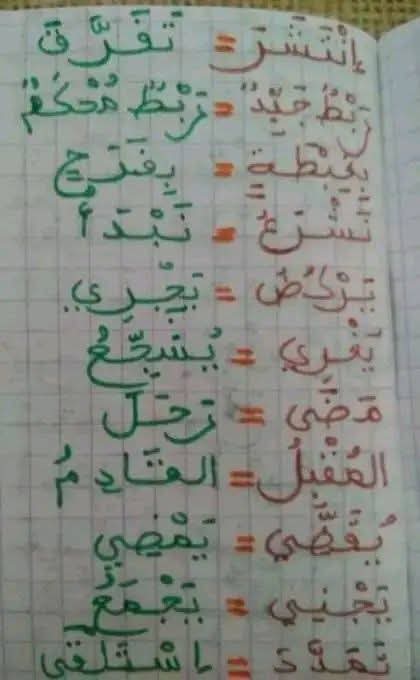 إِنْتَشَرَ = تَفَرَّقَ
رَبْطٌ جَيِّدٌ = رَبْطٌ مُحْكَمٌ
بِغِبْطَةٍ = بِفَرَحٍ
نَشْرَعُ = نَبْدَأُ
يَرْكُضُ = يَجْرِي
يُغْرِي = يُشَجِّعُ
مَضَى = رَحَلَ
المُقْبِلُ = القَادِمُ
يُقَضِّي = يَمْضِي
يَجْنِي = يَجْمَعُ
تَمَدَّدَ = اِسْتَلْقَى